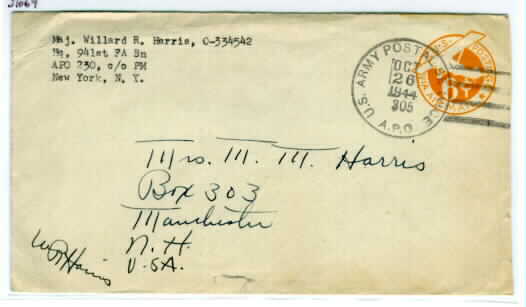 Maj. Willard R. Harris, O-334542
Hq, 941st FA Bn
APO 230, c/o PM
New York, N. Y.
U.S. ARMY POSTAL SERVICE
OCT
26
1944
305
A.P.O.
6¢
Mrs. M. M. Harris
Box 303
Manchester
N. H.
U.S.A.
WR Harris